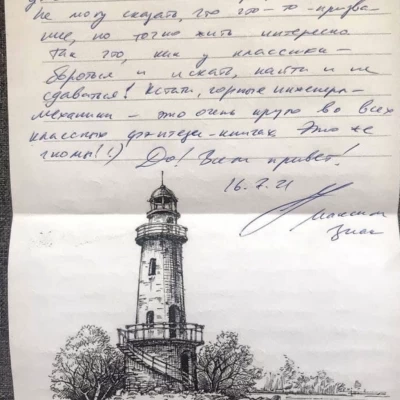 Не могу сказать, что это-то призва-
ние, но точно жить интересно.
Так что, как у классика -
бороться и искать, найти и не
сдаваться! Кстати, горные инженеры-
механики - это очень круто во всех
классных фэнтези-книгах. Это же
гномы!!:) До! Всем привет!
16.7.21
Максим